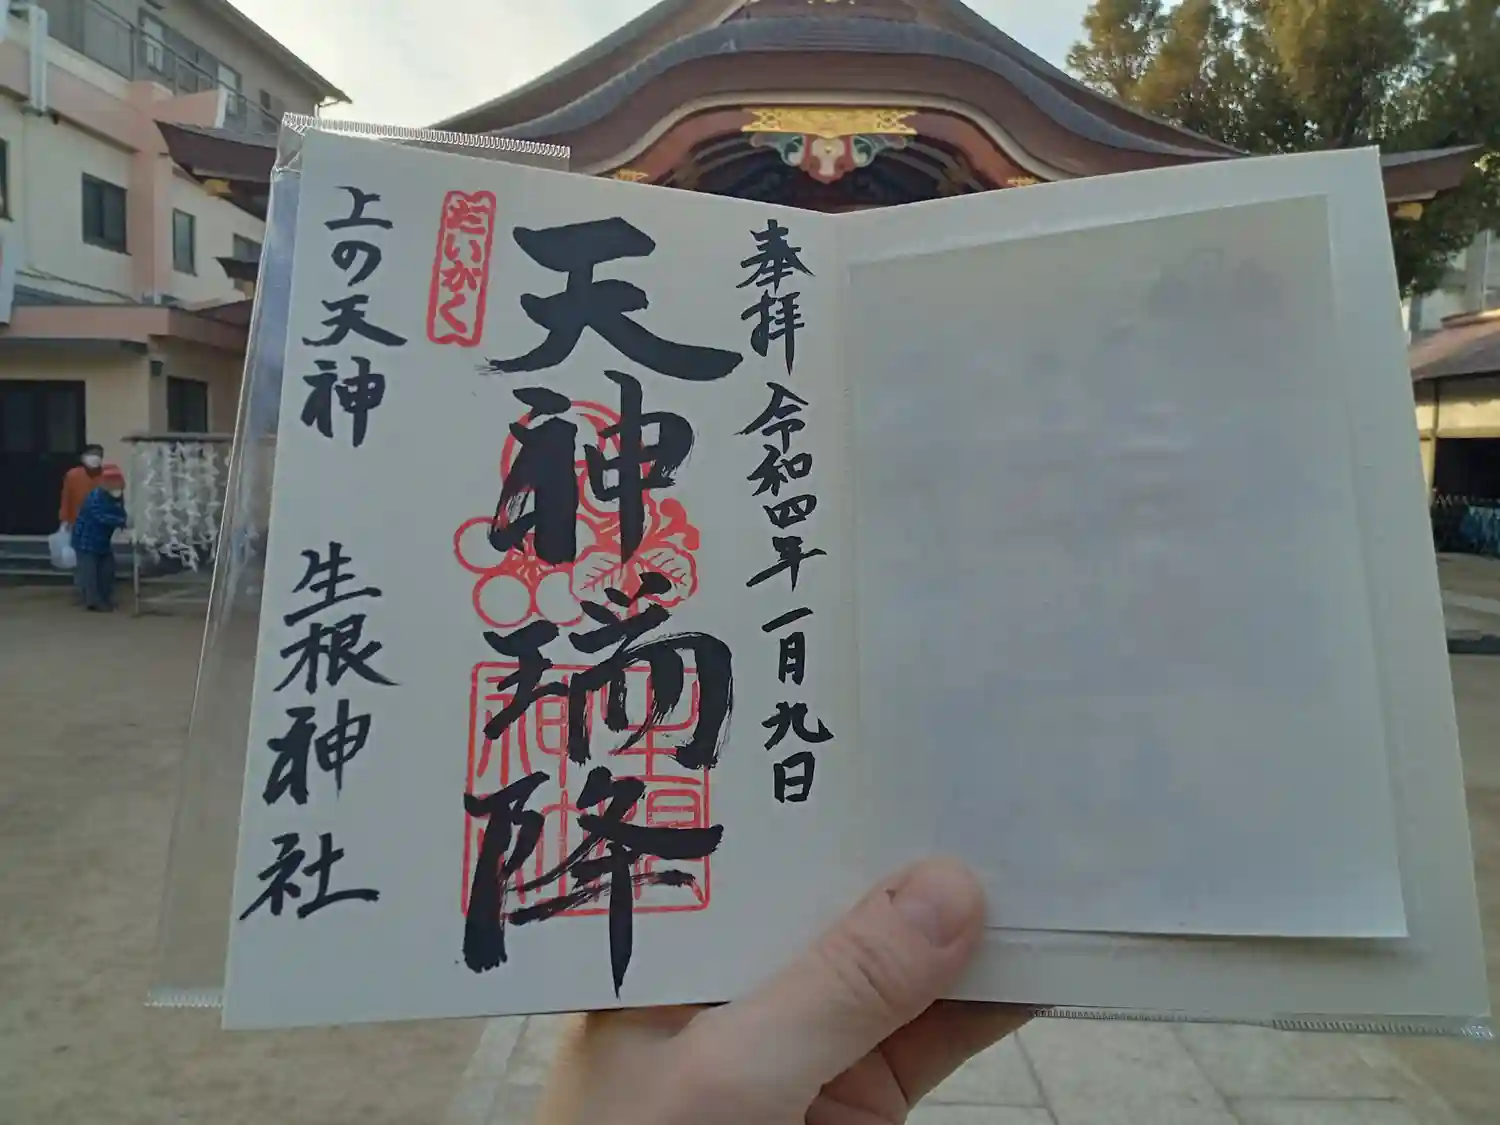 奉拝 令和四年一月九日
天神瑞降
だいがく
上の天神 生根神社
生根神社